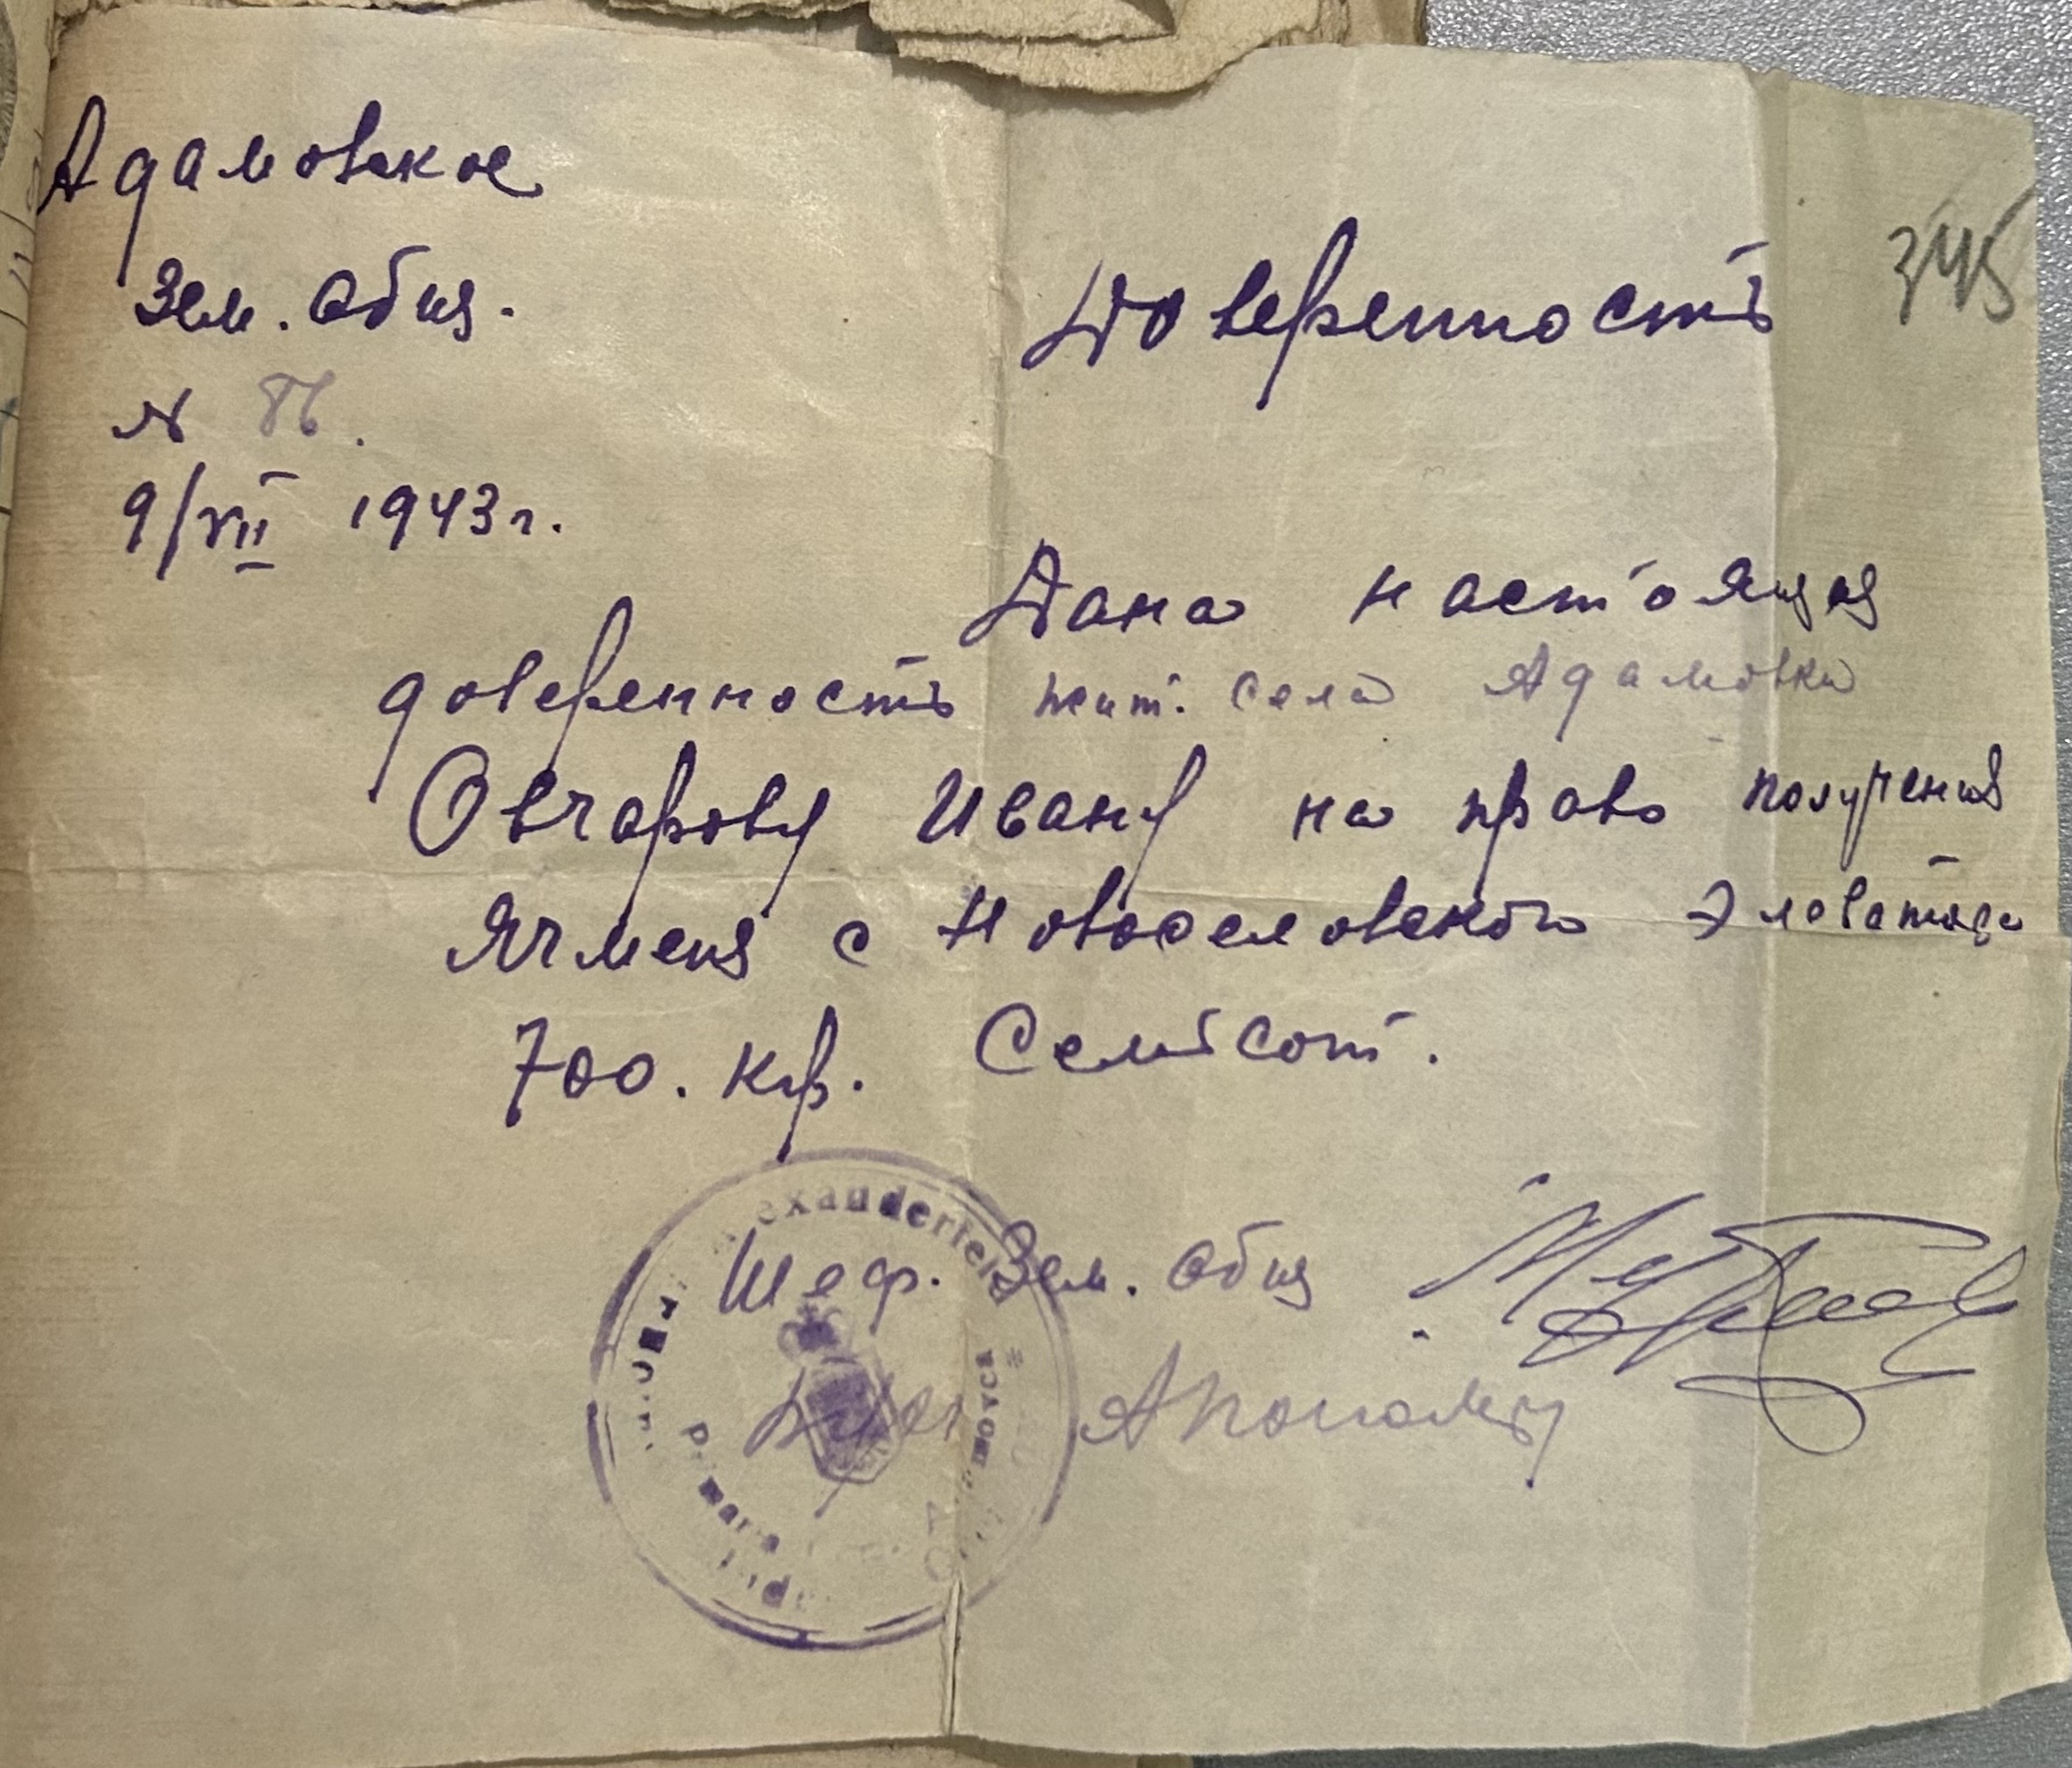 Адамовское
Зем. общ.
N 86.
9/VII 1943 г.
345
Доверенность
Дана настоящая
доверенность жит. села Адамовки
Овчарову Ивану на право получения
Ячменя с Новоселовского Элеватора
700. кгр. Семьсот.
Шеф. Зем. общ.